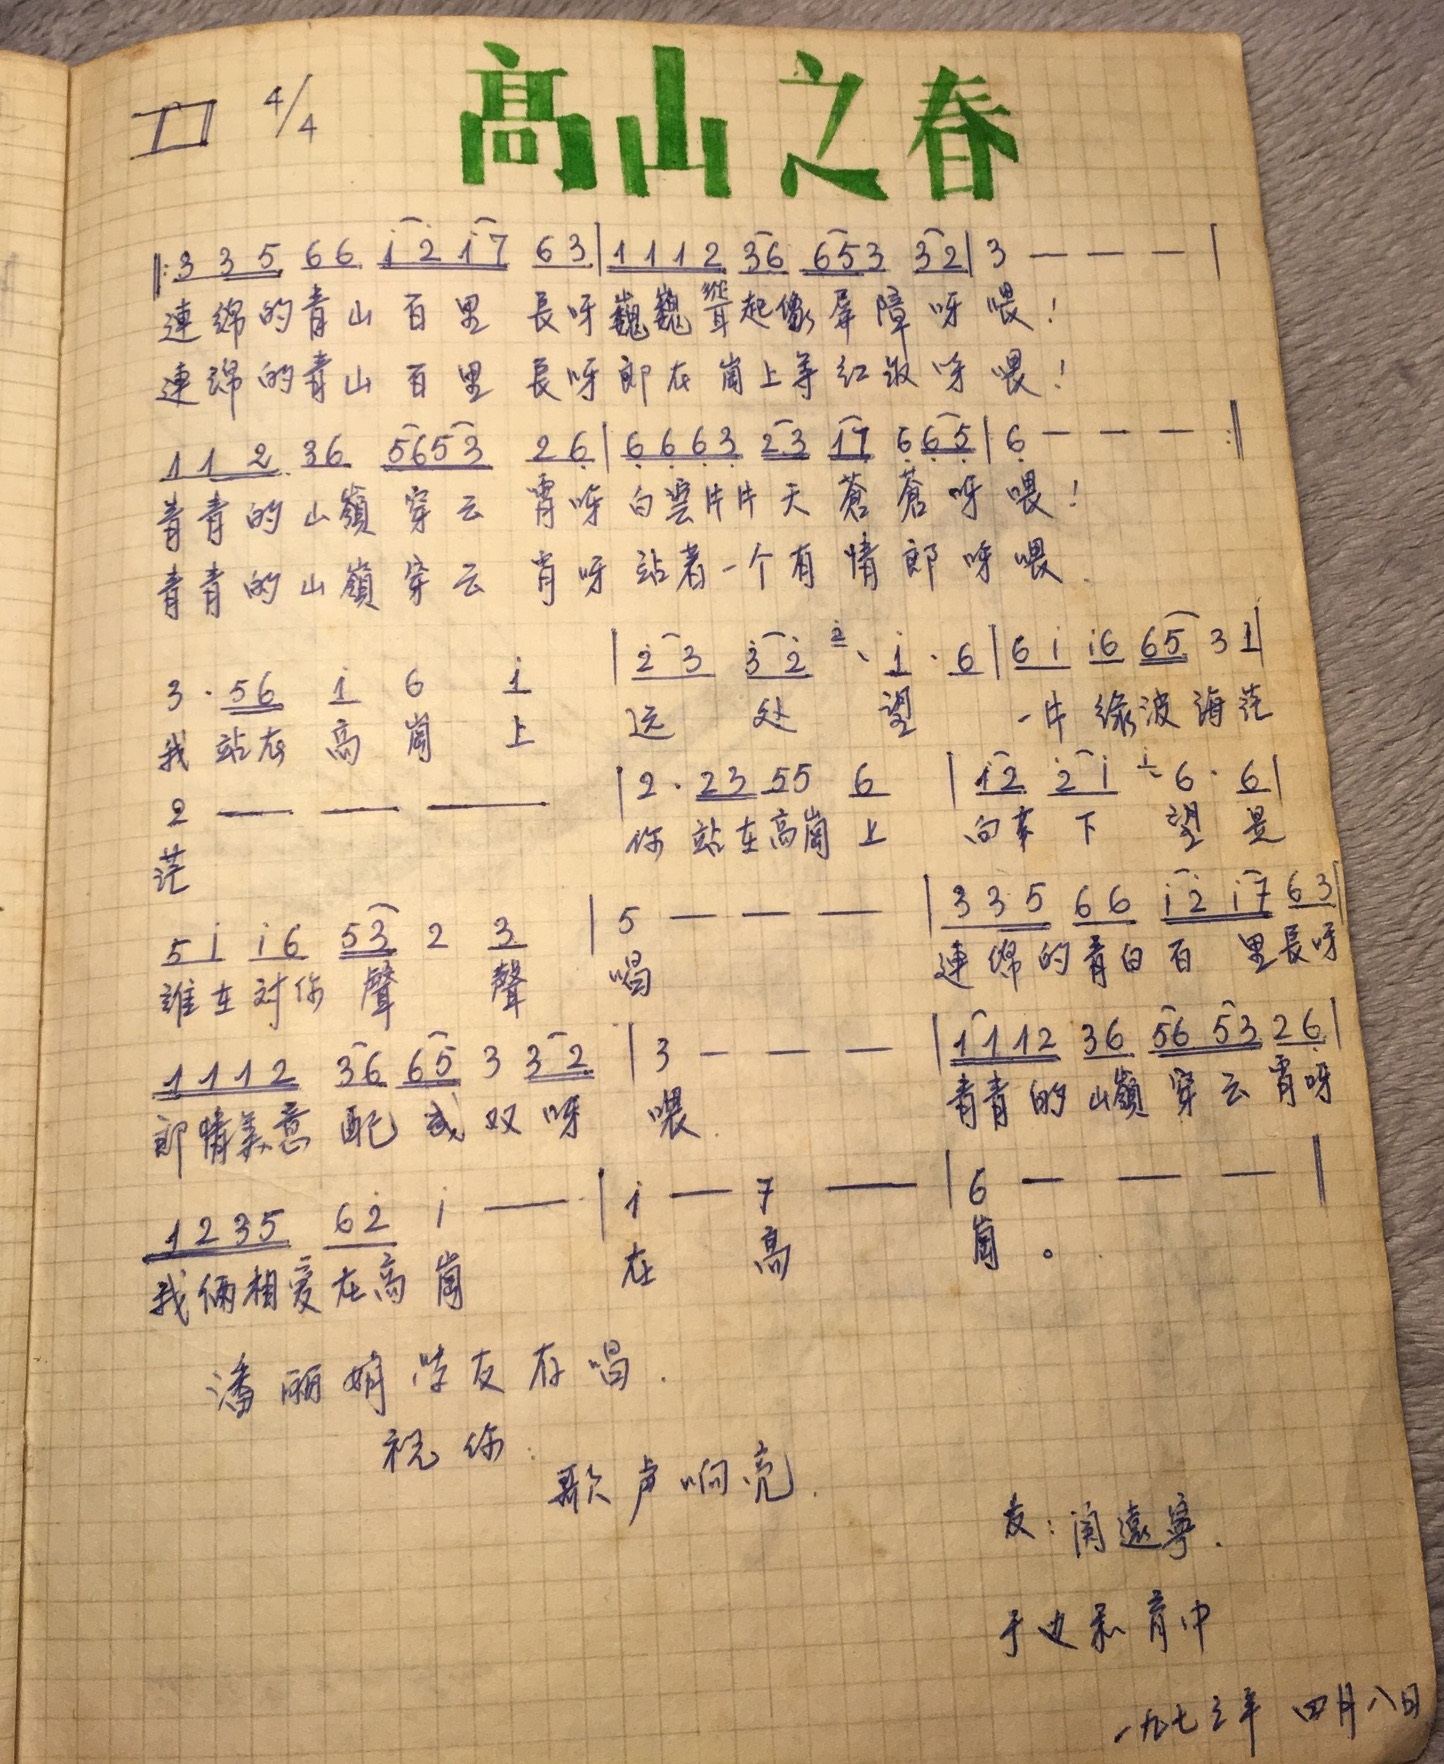 高山之春
4/4
‖: 3 3 5 6 6 i 2 i 7 6 3 | 1 1 1 2 3 6 6 5 3 3 2 | 3 — — — |
連綿的青山百里長呀巍巍聳起像屏障呀喂!
連綿的青山百里長呀郎在崗上等红娘呀喂!
1 1 2 3 6 5 6 5 3 2 6 | 6 6 6 3 2 3 1 7 6 6 5 | 6 — — — :‖
青青的山嶺穿云霄呀白雲片片天蒼蒼呀喂!
青青的山嶺穿云肖呀站着一个有情郎呀喂.
3 · 5 6 i 6 i | 2 3 3 2 2 i · 6 | 6 i i 6 6 5 3 1 |
我站在高崗上 远处望 一片綠波海茫
2 — — — | 2 · 2 3 5 5 6 | i 2 2 i i 6 · 6 |
茫 你站在高崗上 向下望是
5 i i 6 5 3 2 3 | 5 — — — | 3 3 5 6 6 i 2 i 7 6 3 |
誰在对你聲聲 唱 連綿的青白百里長呀
1 1 1 2 3 6 6 5 3 3 2 | 3 — — — | 1 1 1 2 3 6 5 6 5 3 2 6 |
郎情美意配成双呀 喂. 青青的山嶺穿云霄呀
1 2 3 5 6 2 i — | i — 7 — | 6 — — — |
我俩相爱在高崗 在高 崗。
潘丽娟学友存唱.
祝你:
歌声响亮.
友:闵遠寧.
于 育中
一九七三年 四月八日